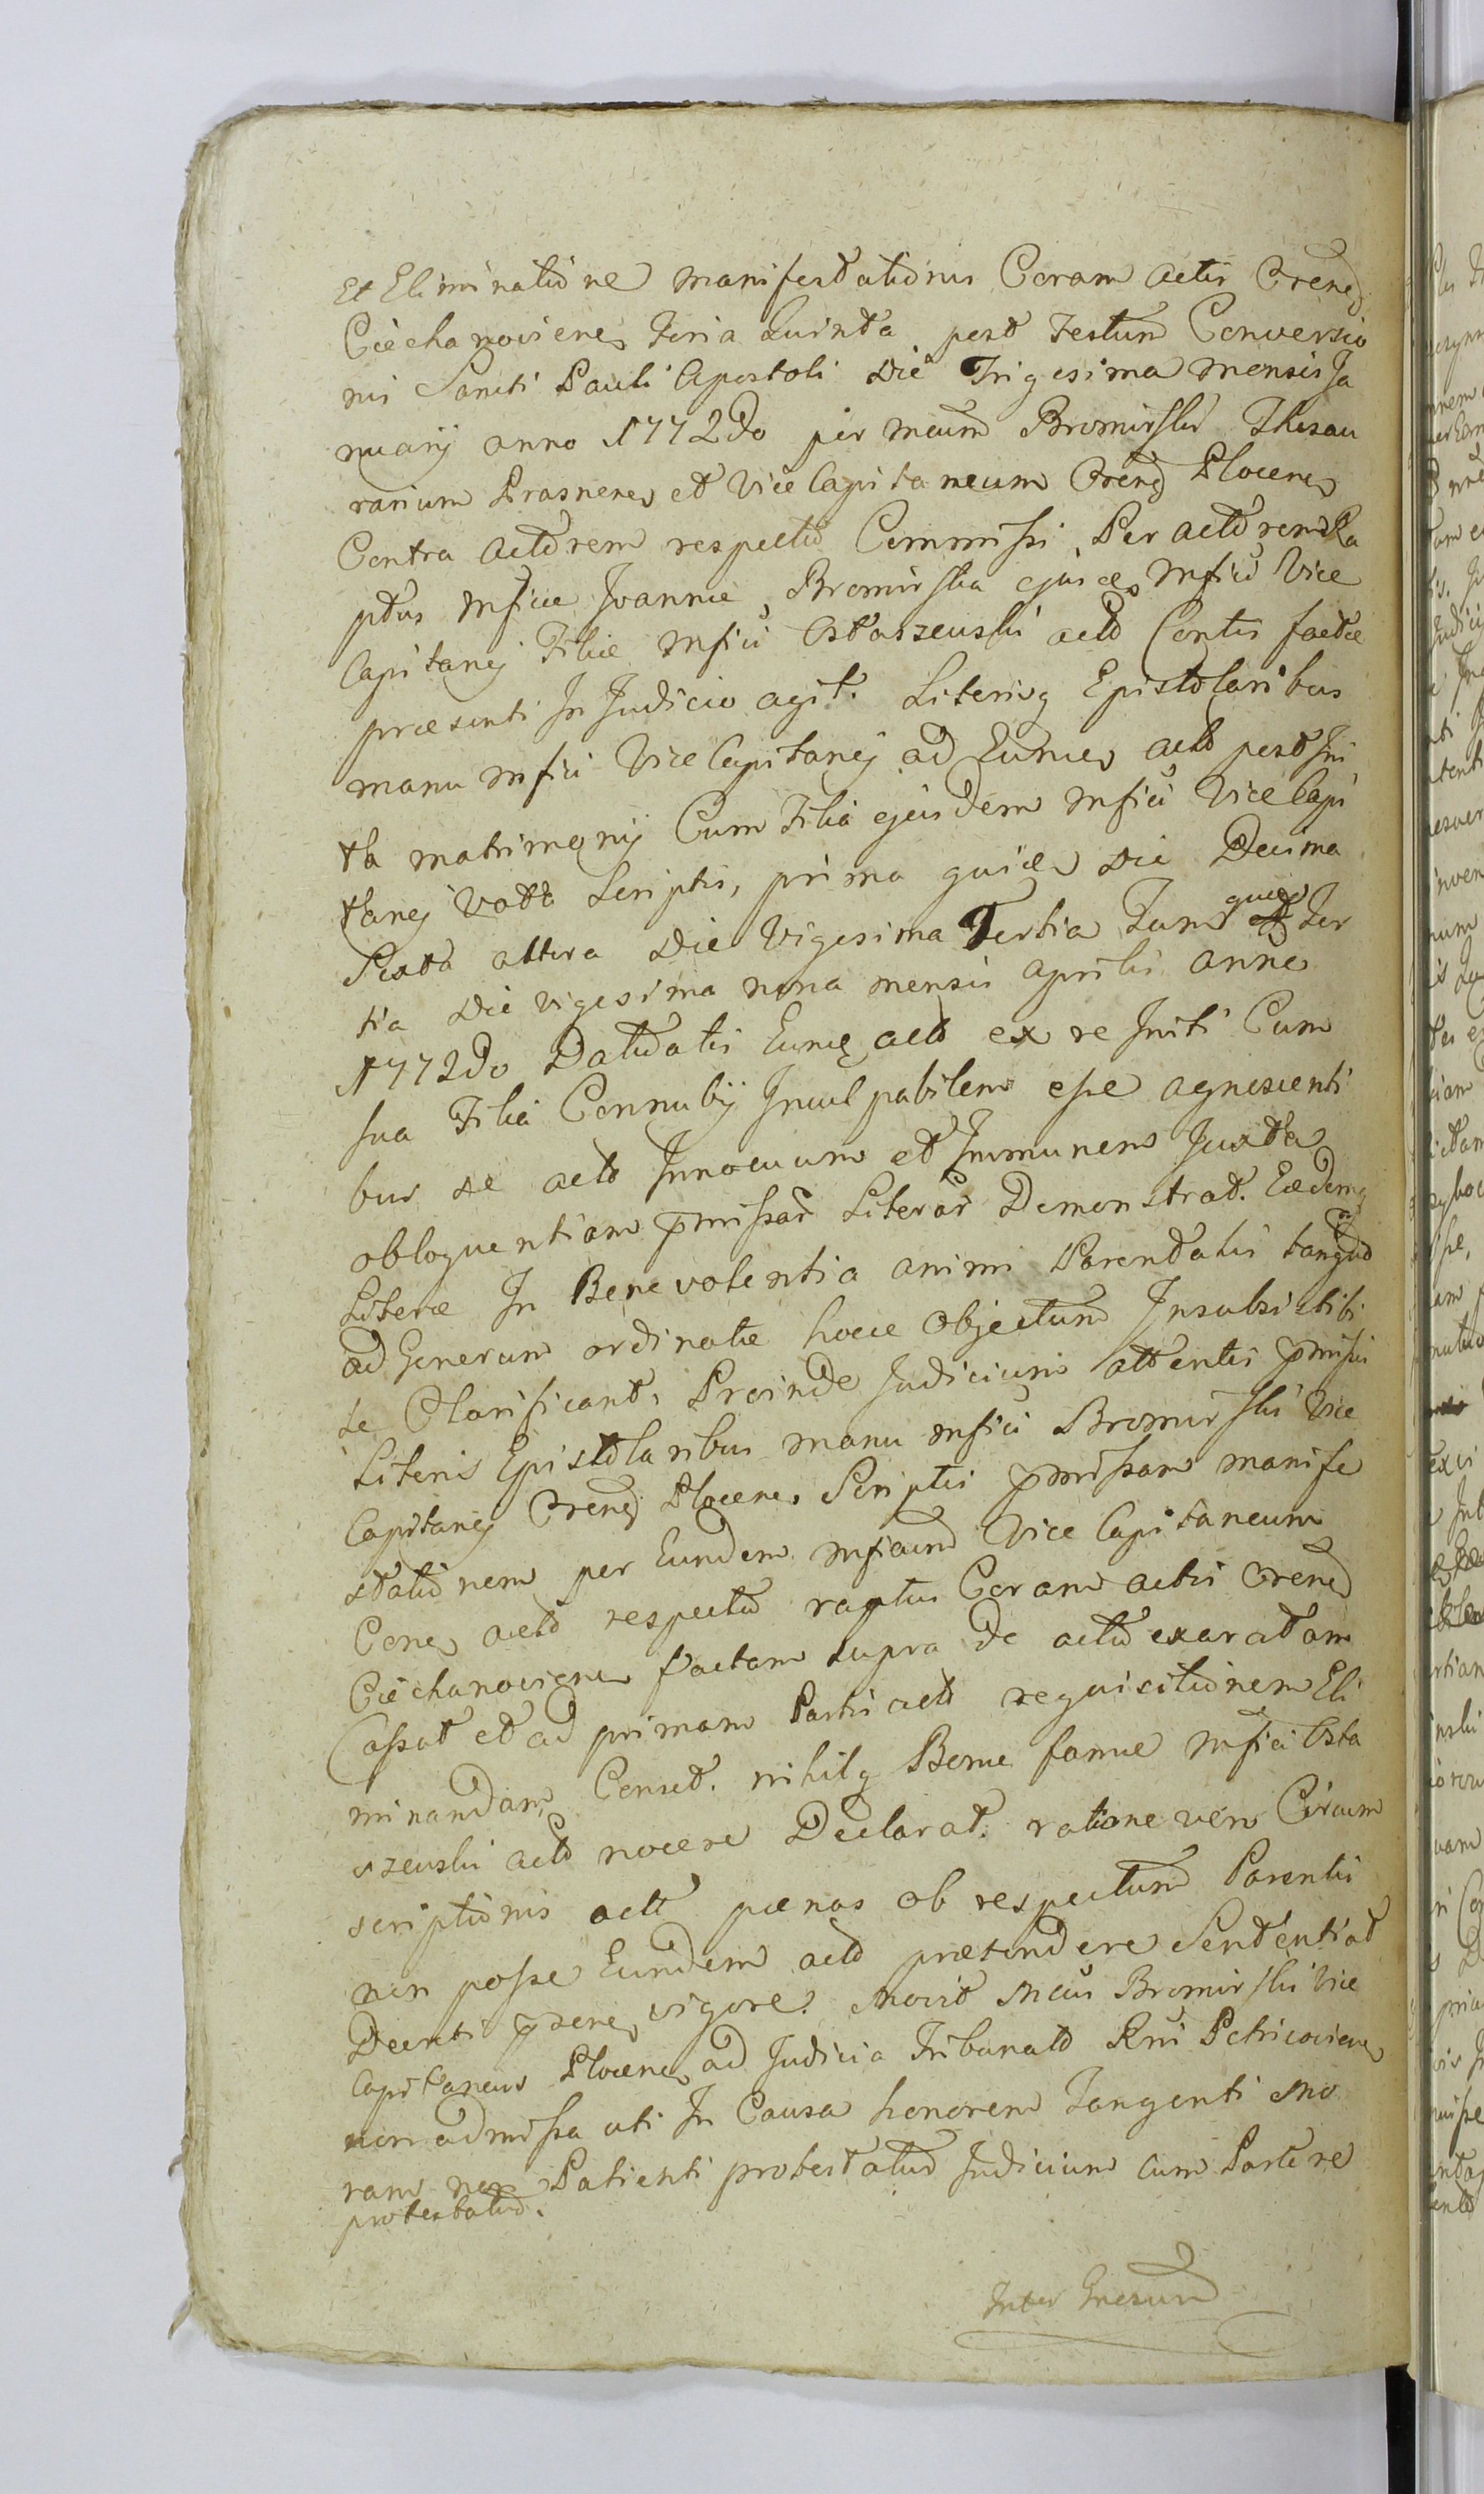 Et Eliminatione manifestationis Coram actis Crens
Ciechanoviens Feria Quinta post Festum Conversio
nis Sancti Pauli Apostoli Die Trigesima mensis Ja
nuarij anno 1772do per Mcum Bromirski Thesau
rarium Prasnens et Vice Capitaneum Crens Plocens
Contra actorem respectu Commissi, Per actorem Ra
ptus Mficae Joannae, Bromirska ejusd Mfici Vice
Capitanej Filiae Mfici Ostaszewski acto Contis factae
praesenti In Judicio agit. Literisq Epistolaribus
manu Mfici Vice Capitanej ad Eund acto post Ini
ta matrimonij Cum Filia ejusdem Mfici Vice Capi
tanej Vota Scriptis, prima quid Die Decima
Sexta altera Die Vigesima Tertia Tum quid Ter
tia Die vigesima nona mensis Aprilis anno
1772do Datudatis Eund acto ex re Initi Cum
sua Filia Connubij Inculpabilem esse agnoscenti
bus se acto Innocuum et Immunem Juxta
obloquentiam pmissar Literar Demonstrat. Eaedemq
Literae In Benevolentia animi Parentalis tanqd
ad Generum ordinatae hocce Objectum Insubsistibi
le Clarificant, Proinde Judicium attentis pmissis
Literis Epistolaribus manu Mfici Bromirski Vice
Capitanej Crens Plocens Scriptis pmissam manife
stationem per Eundem Mficum Vice Capitaneum
Cone acto respectu raptus Coram actis Crens
Ciechanoviens factam supra de actu exaratam
Cassat et ad primam Partis acto requisitionem Eli
minandam Censet. nihilq Bonae famae Mfici Osta
szewski acto nocere Declarat. ratione vero Circum
scriptionis actt paenas ob respectum Parentis
non posse Eundem acto praetendere Sententiat
Decreti psens vigore. Movit Mcus Bromirski Vice
Capitaneus Plocens ad Judicia Tribunalo Rni Petricoviens
non admissa uti In Causa honorem Tangenti Mo
ram non Patienti protestatur Judicium cum Parte re
protestatur.
Inter Gnesum